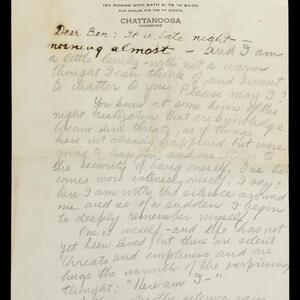 150 ROOMS WITH BATH $1.75 TO $3.00
SUN PARLOR FOR USE OF GUESTS
CHATTANOOGA
TENNESSEE
Dear Ben: It is late night -
morning almost - and I am
a little lonely - with not a warm
thought I can think of, and I want
to chatter to you. Please may I?
You know at some hours of the
night realizations that are knowledge
become dim threats, as if things
have not already happened but were
going to happen, and one clings to
the security of being oneself. One be-
comes most intensely oneself, I say:
here I am with the silence around
me and so of a sudden I begin
to deeply remember myself.
One is oneself - and life has not
yet been lived but there are silent
threats and emptiness and one
hugs the warmth of the surprising
thought: "Here am I -"
and the silence